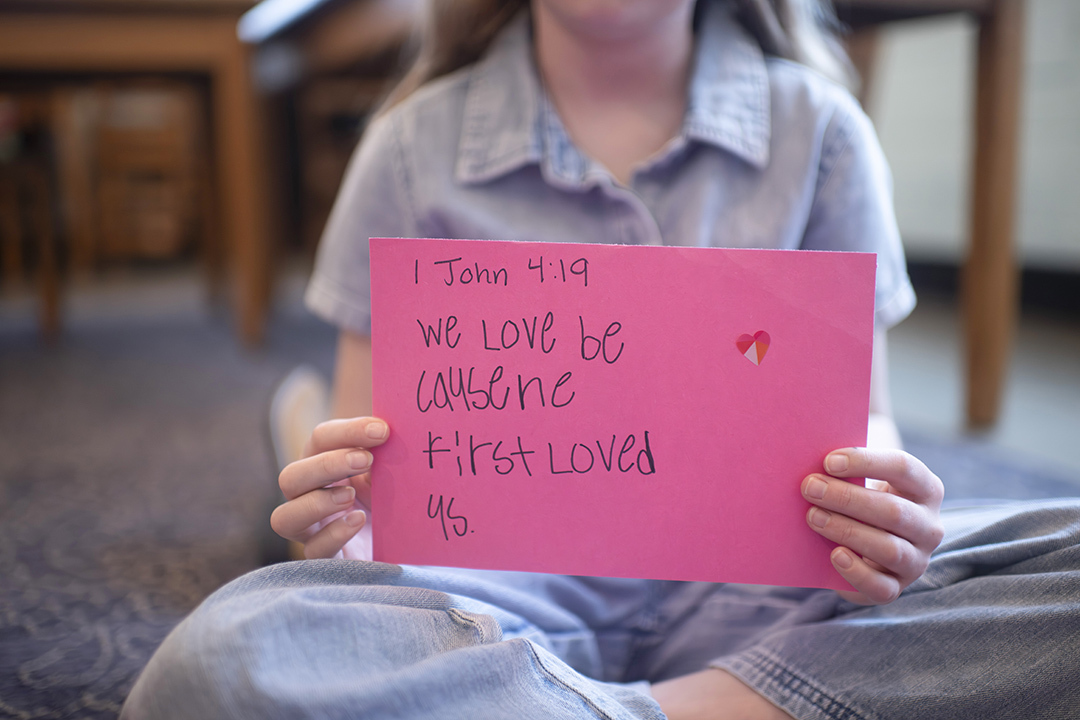 1 John 4:19
We Love be
cause he
First Loved
us.